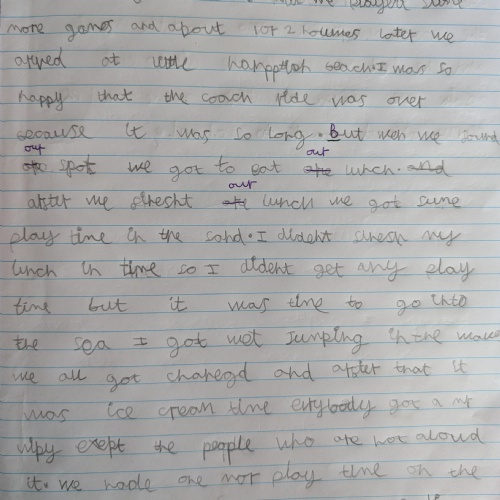 we played some
more games and about 1or 2 houres later we
arived at little hampton beach. I was so
happy that the coach ride was over
because it was so long. But wen we found
out
spot we got to eat out lunch.
after we finesht our lunch we got sume
play time in the sand. I dident finesh my
lunch in time so I dident get any play
time but it was time to go into
the sea I got wet Jumping in the waves
we all got chanegd and after that it
was ice cream time evrybody got a mr
wipy exept the people who are not aloud
it. we hade one mor play time on the